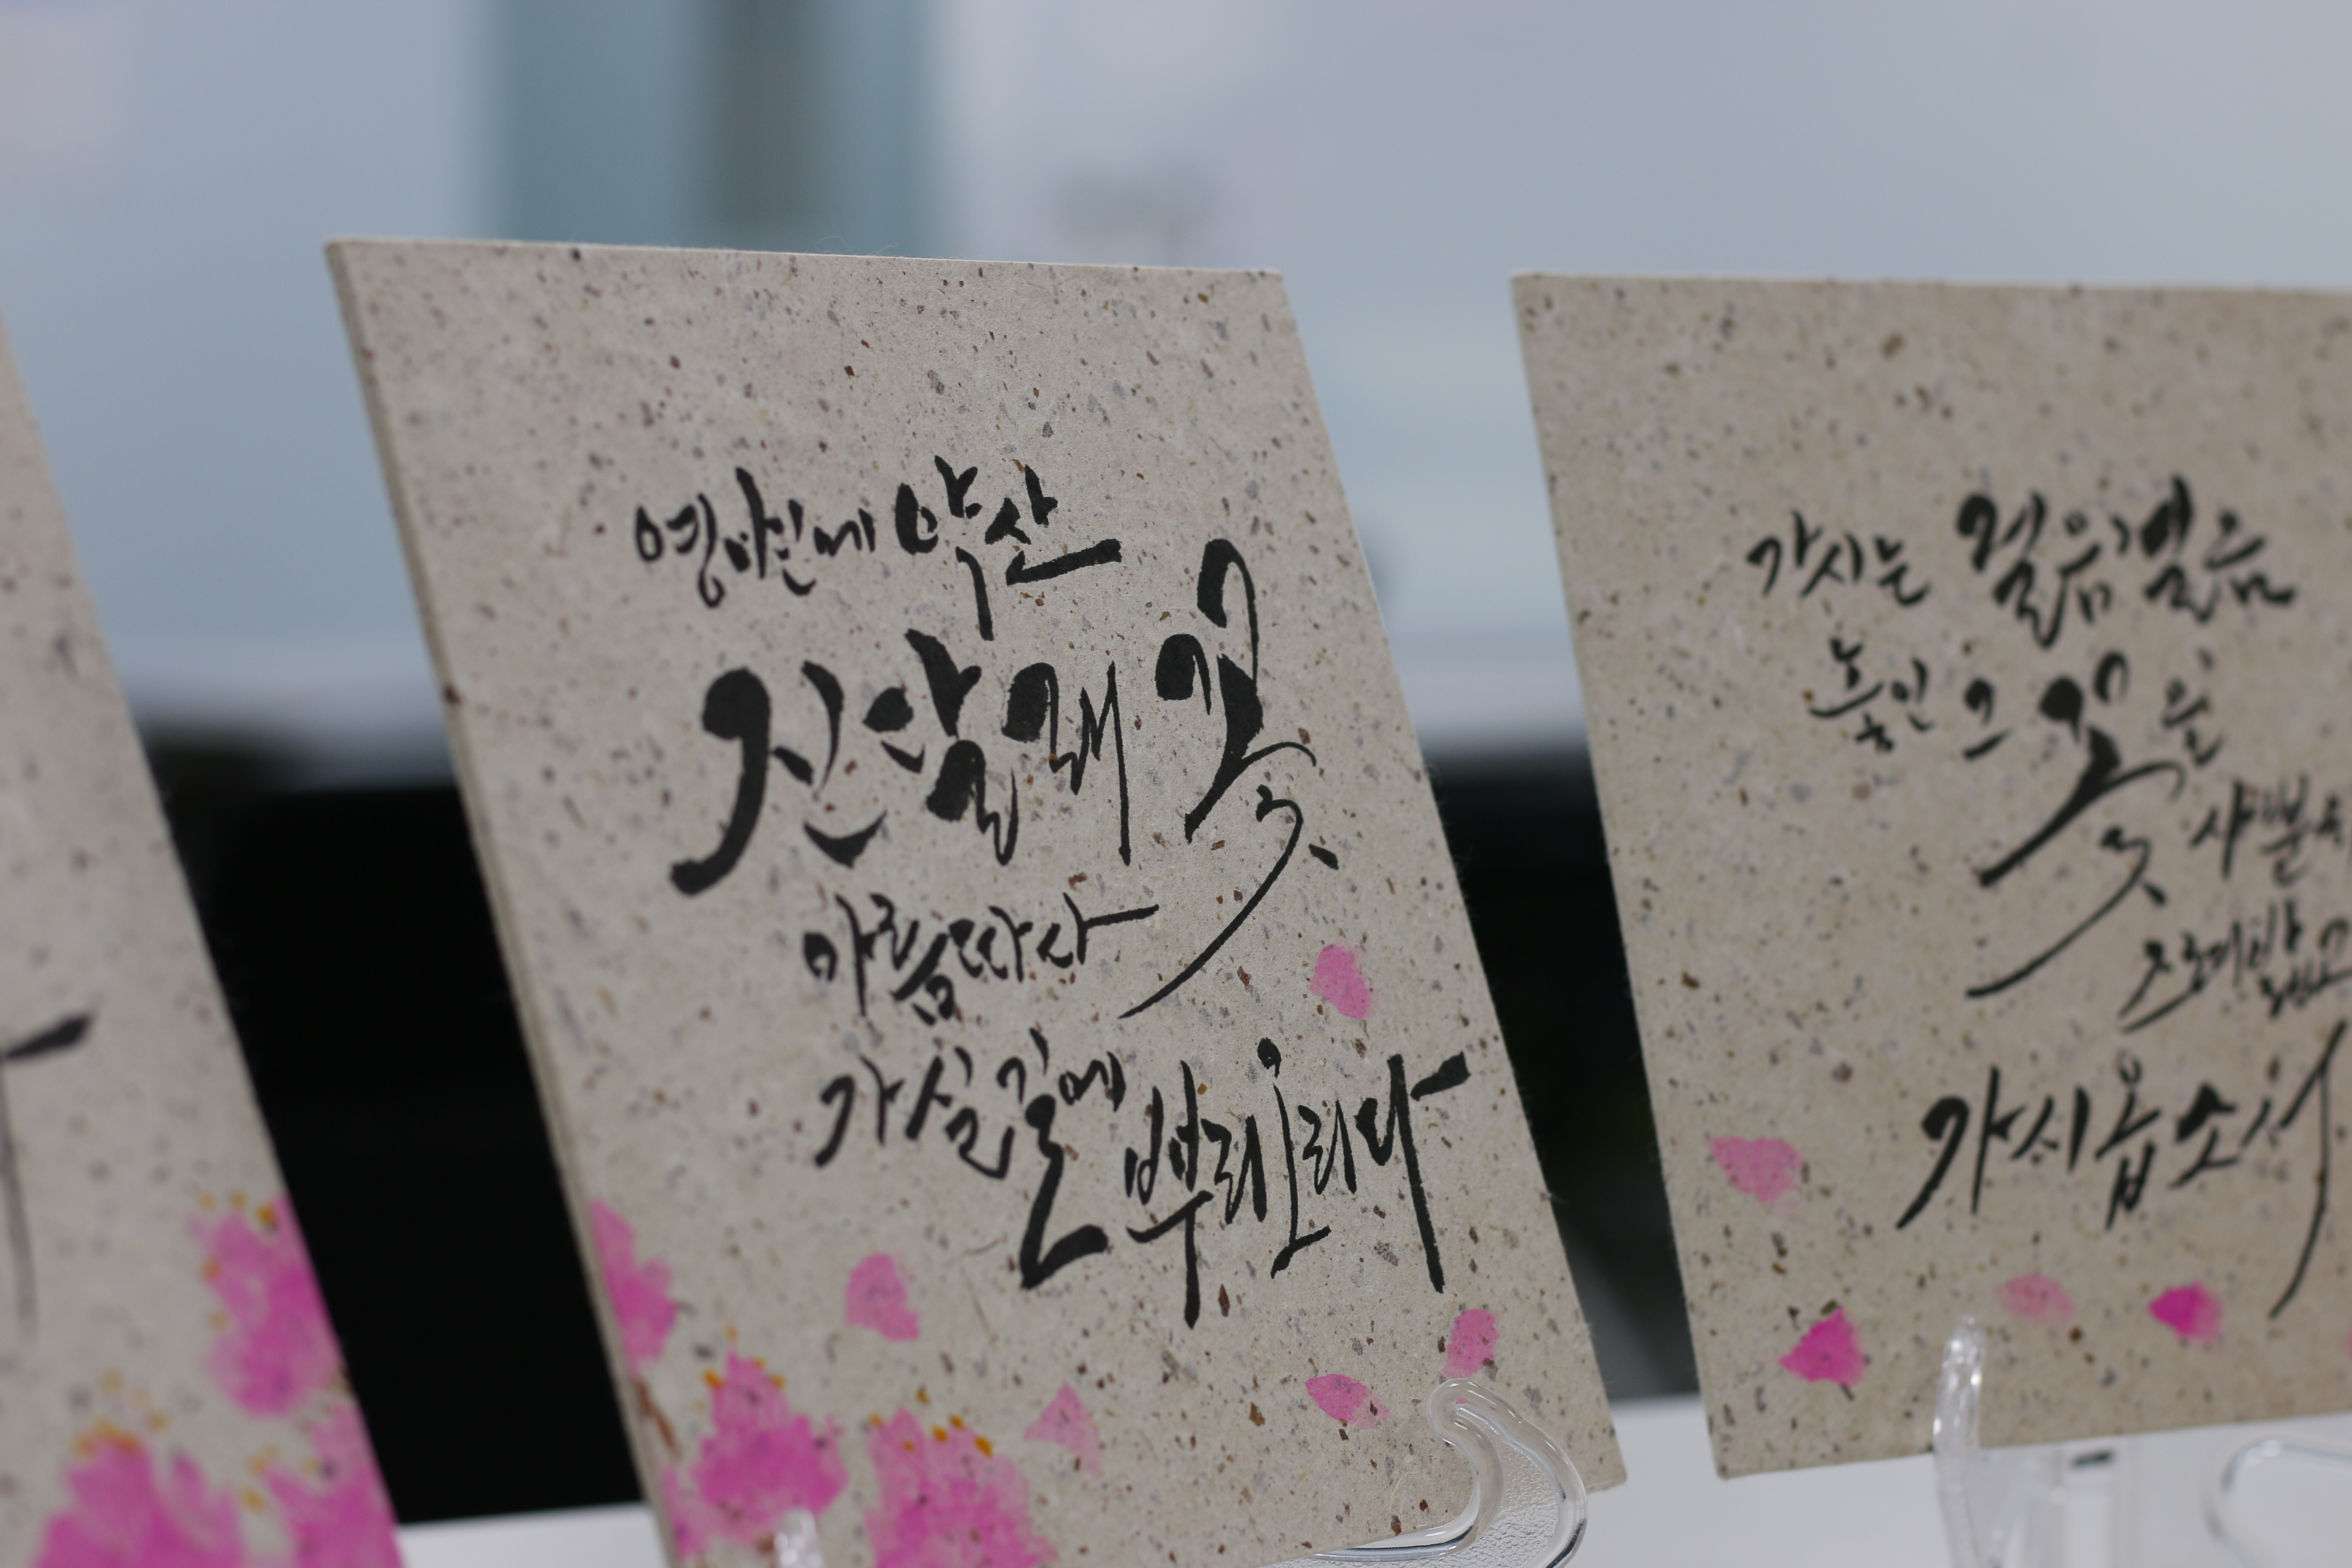 영변에 약산
진달래꽃
아름따다
가실 길에 뿌리오리다
가시는 걸음걸음
놓인 그 꽃을
사뿐
즈려밟고
가시옵소서